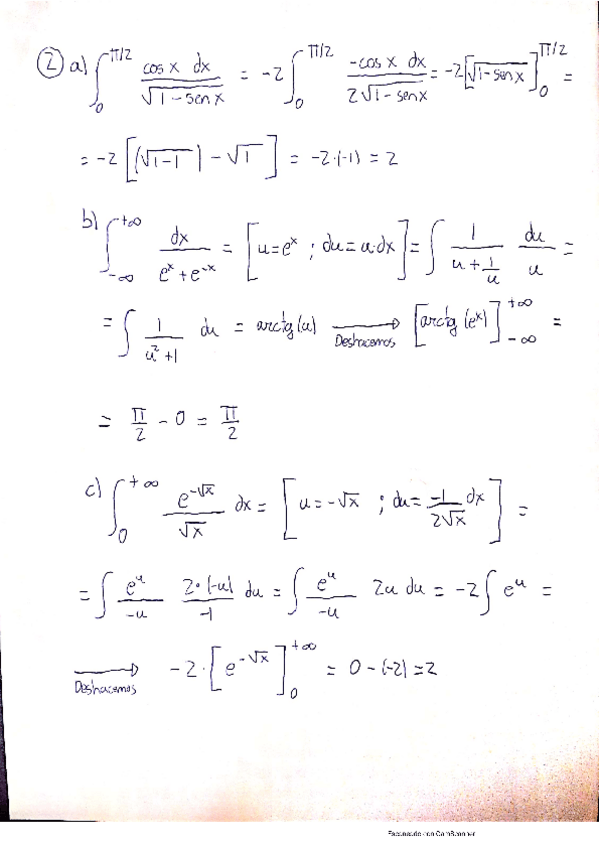 ② a) ∫₀^{π/2} cos x dx / √(1-sen x) = -2 ∫₀^{π/2} -cos x dx / 2√(1-sen x) = -2 [√(1-sen x)]₀^{π/2} =
= -2 [(√(1-1)) - √1] = -2·(-1) = 2
b) ∫_{-∞}^{+∞} dx / (e^x + e^{-x}) = [u=e^x ; du=u·dx] = ∫ 1 / (u + 1/u) du/u =
= ∫ 1 / (u²+1) du = arctg(u) → Deshacemos [arctg(e^x)]_{-∞}^{+∞} =
= π/2 - 0 = π/2
c) ∫₀^{+∞} e^{-√x} / √x dx = [u=-√x ; du= -1 / 2√x dx] =
= ∫ e^u / -u 2·(-u) / -1 du = ∫ e^u / -u 2u du = -2 ∫ e^u =
→ Deshacemos -2·[e^{-√x}]₀^{+∞} = 0-(-2) = 2
Escaneado con CamScanner